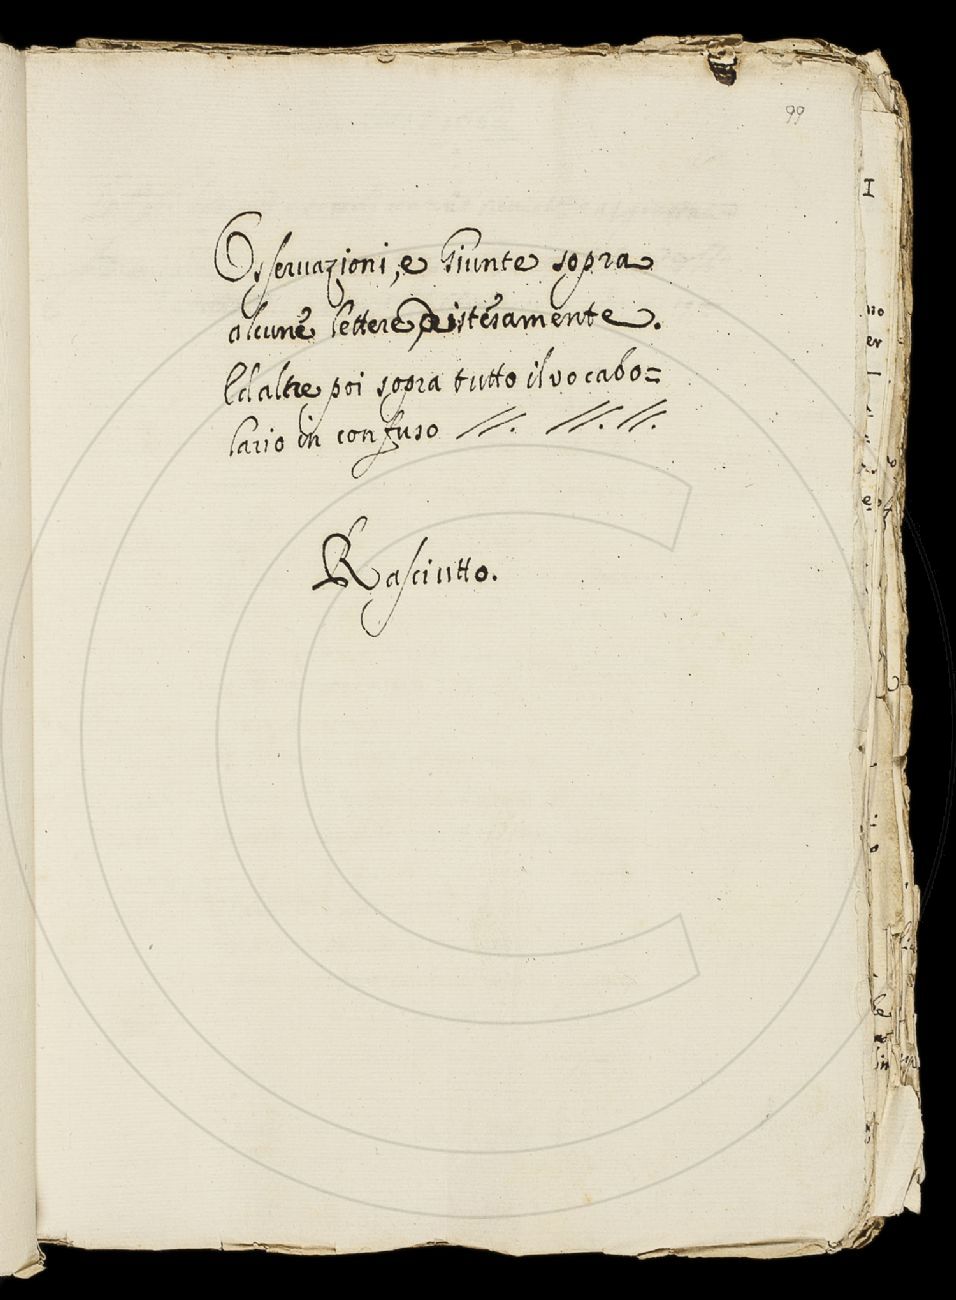 99
Osservazioni, e Giunte sopra
alcune lettere distesamente.
Ed altre poi sopra tutto il vocabo=
lario in confuso //. //. //.
Rasciutto.